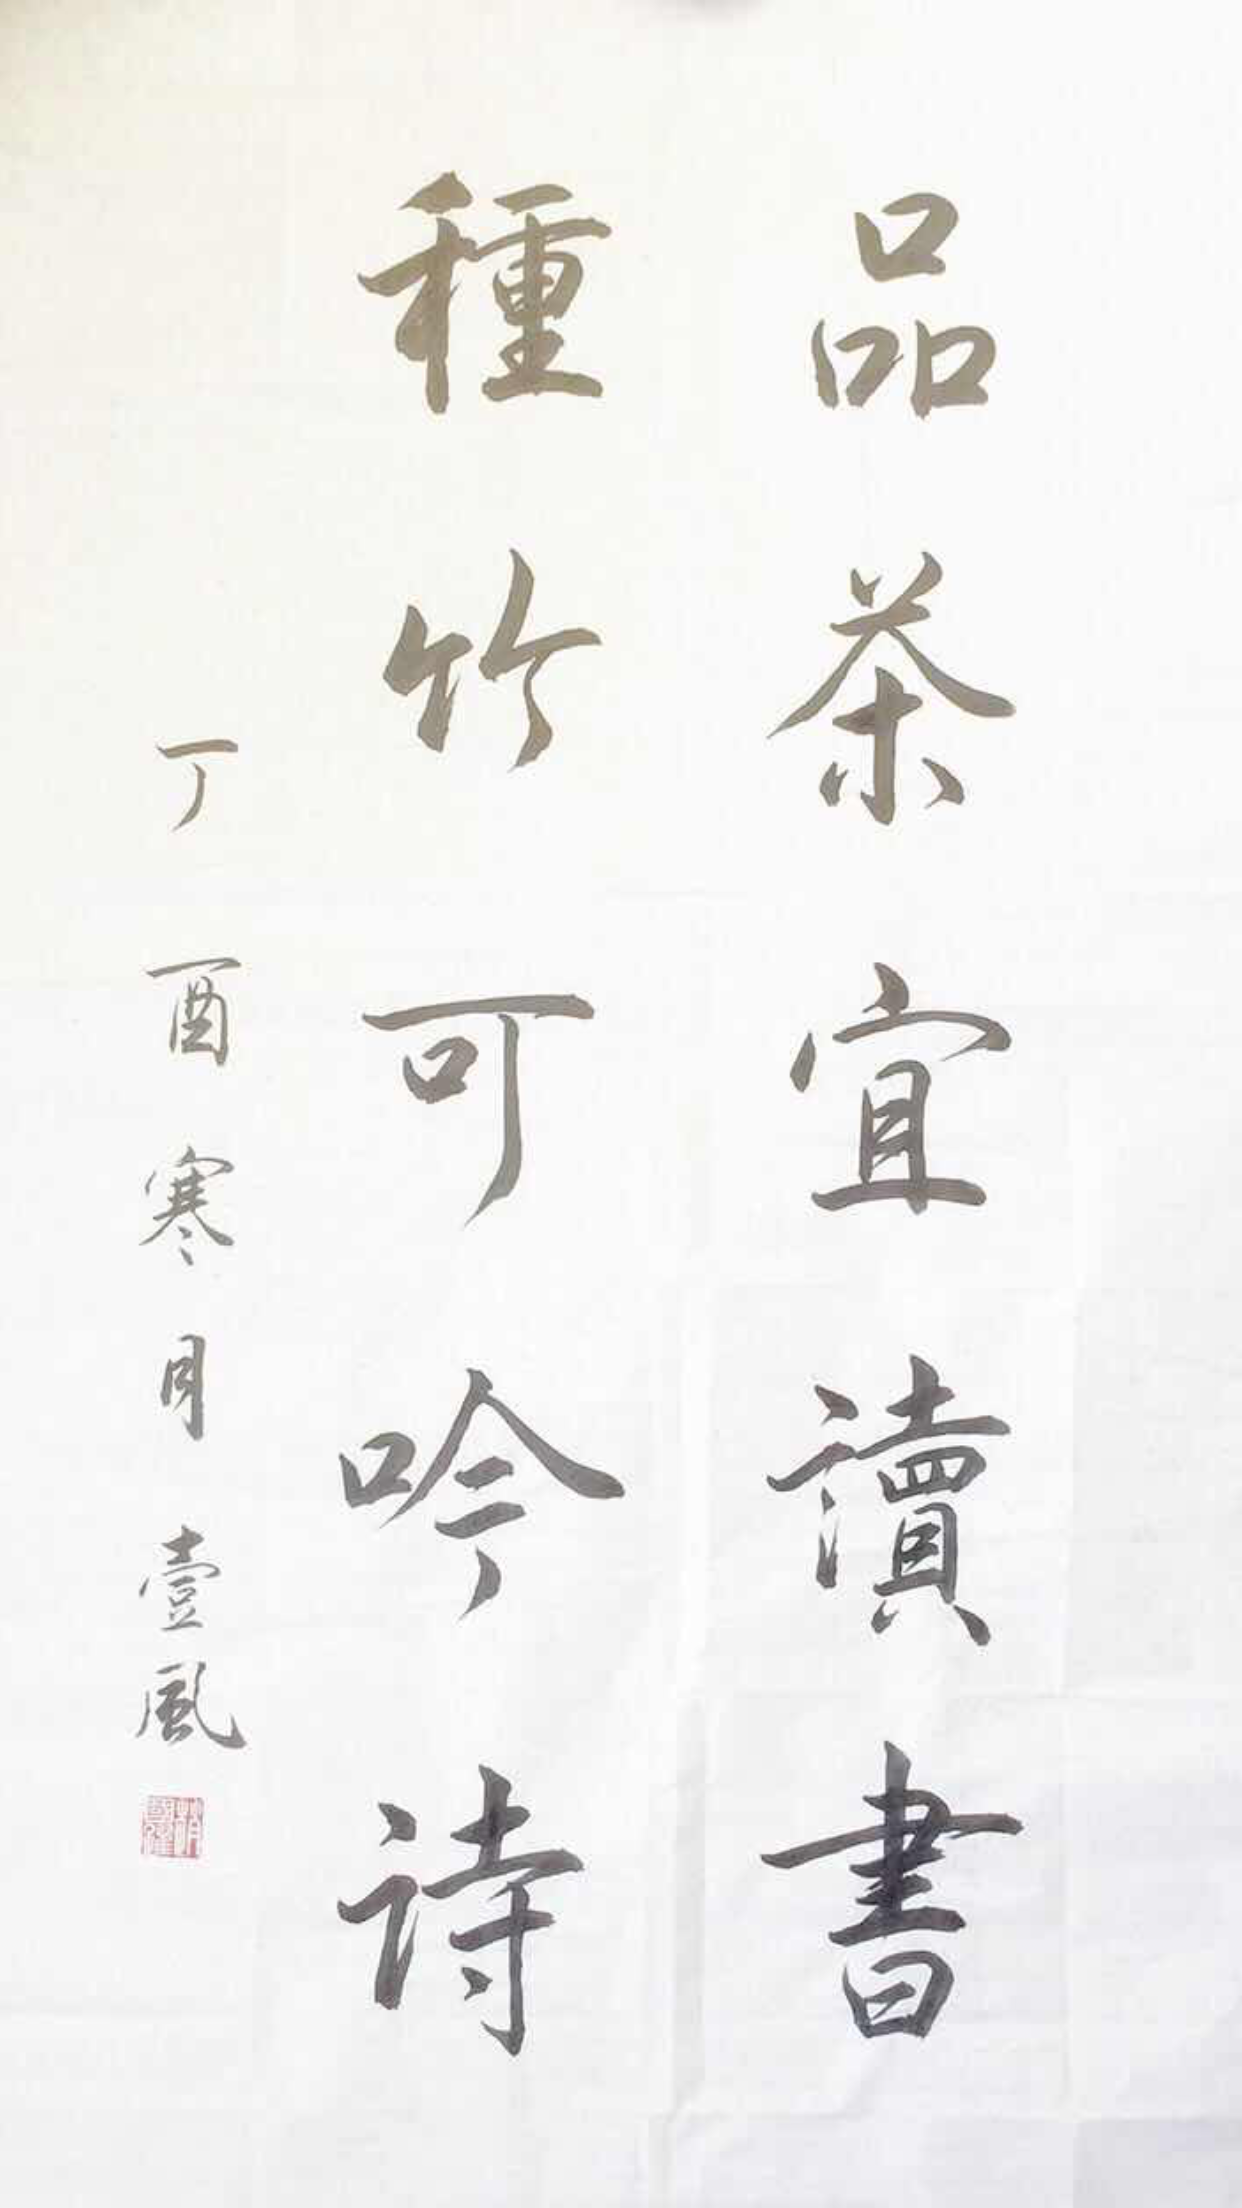 品茶宜讀書
種竹可吟诗
丁酉寒月壹風